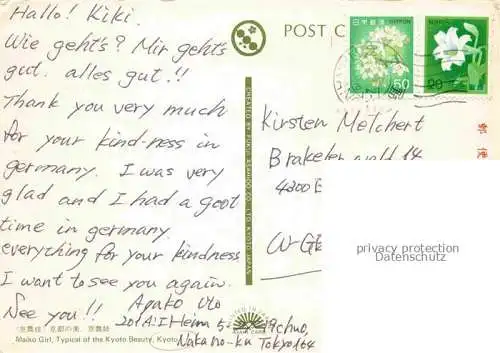 Hallo! Kiki.
Wie geht's? Mir geht's
gut. alles gut.!!
Thank you very much
for your kind-ness in
germany. I was very
glad and I had a goot
time in germany
everything for your kindness
I want to see you again.
See you!!
Ayako Uto
201A.I Heim 5-
chuo,
Nakano-ku Tokyo 164
京都の美、
Maiko Girl, Typical of the Kyoto Beauty, Kyoto
POST C
CREATED BY
CO., LTD. KYOTO JAPAN
日本郵便 NIPPON
50
NIPPON
20
Kirsten Melchert
Brakeler wald 14
4300 E
W-GE
郵便
privacy protection
Datenschutz